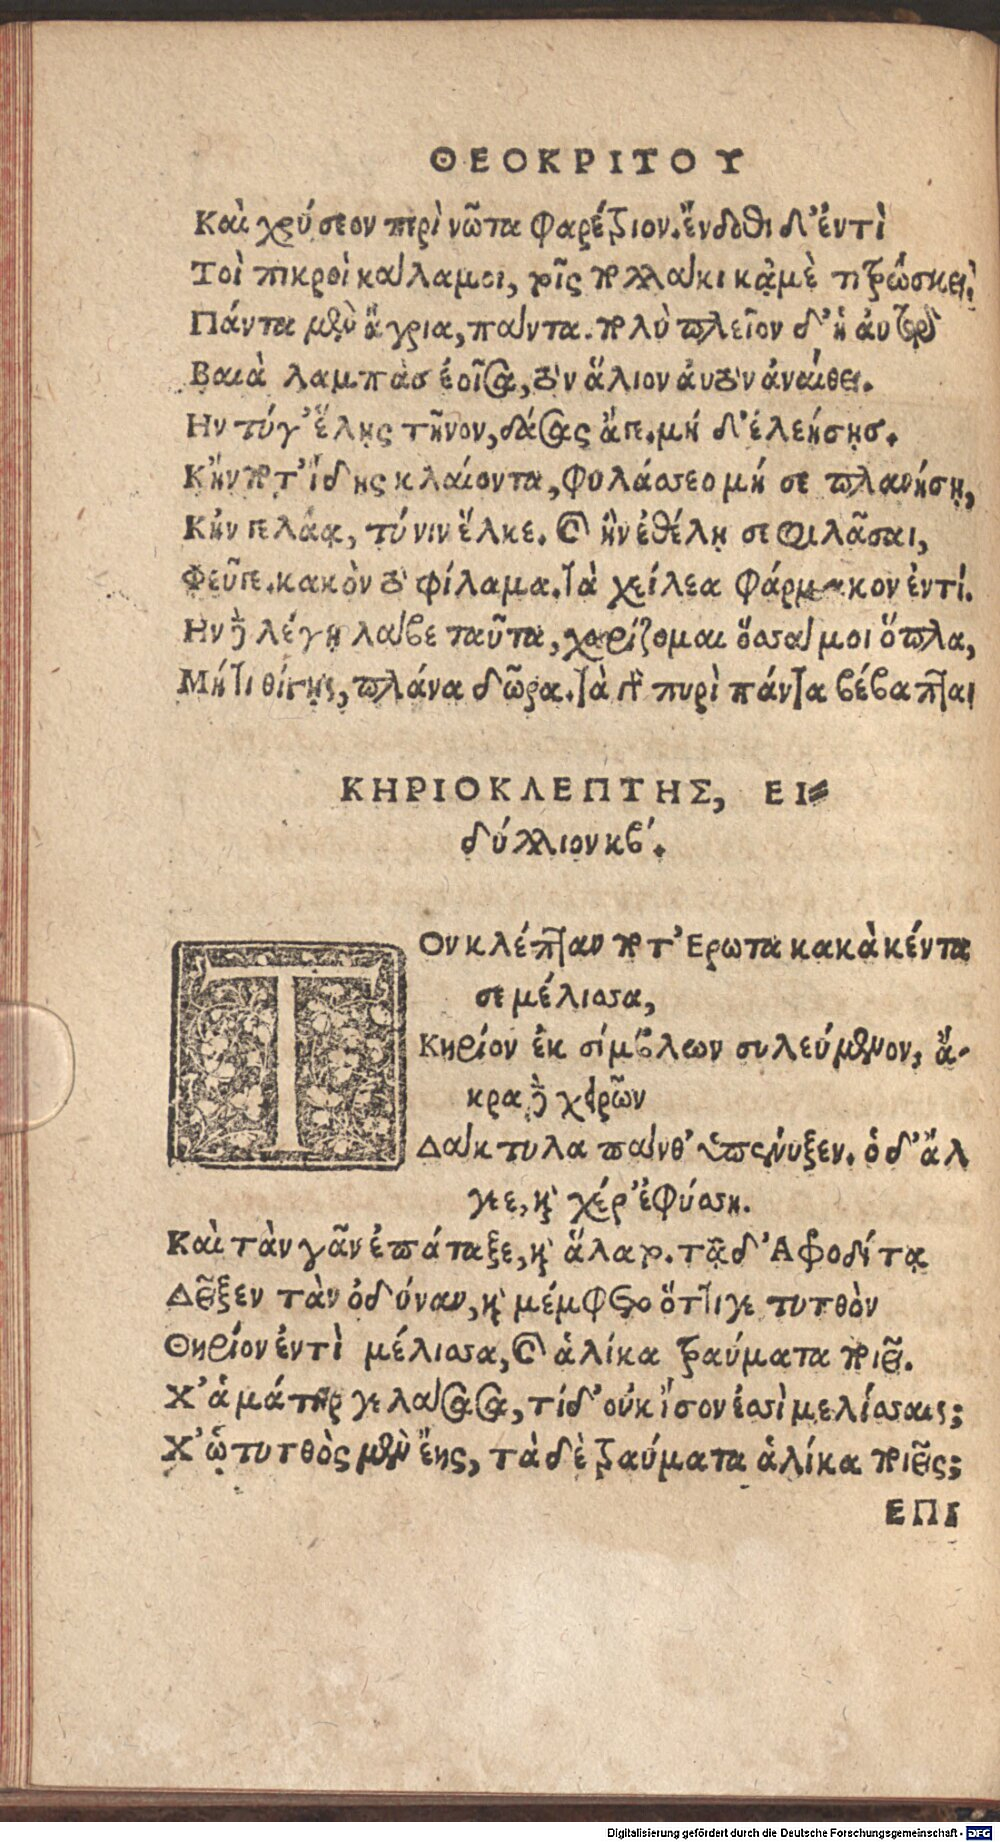 ΘΕΟΚΡΙΤΟΥ
Καὶ χρύσεον περὶ νῶτα φαρέτριον. ἔνδοθι δ' ἐντὶ
Τοὶ πικροὶ κάλαμοι, τοῖς πολλάκι κᾀμὲ τιτρώσκει.
Πάντα μὲν ἄγρια, πάντα. πολὺ πλεῖον δ' ἡ αὐτῷ
Βαιὰ λαμπὰς ἐοῖσα, τὸν ἅλιον αὐτὸν ἀναίθει.
Ην τύγ' ἕλῃς τῆνον, δάσας ἄγε. μή δ' ἐλεήσῃς.
Κἤν ποτ' ἴδῃς κλαίοντα, φυλάσσεο μή σε πλανήσῃ,
Κἠν γελάᾳ, τύ νιν ἕλκε. καὶ ἢν ἐθέλῃ σε φιλᾶσαι,
Φεῦγε. κακὸν τὸ φίλαμα. τὰ χείλεα φάρμακον ἐντί.
Ην δὲ λέγῃ λάβε ταῦτα, χαρίζομαι ὅσσα μοι ὅπλα,
Μή τι θίγῃς, πλάνα δῶρα. τὰ γὰρ πυρὶ πάντα βέβαπται
ΚΗΡΙΟΚΛΕΠΤΗΣ, ΕΙ-
δύλλιον κβ'.
ΤΟν κλέπταν ποτ' Ερωτα κακὰ κέντα
σε μέλισσα,
Κηρίον ἐκ σίμβλων συλεύμενον, ἄ-
κρα δὲ χειρῶν
Δάκτυλα πάνθ' ὑπένυξεν. ὁ δ' ἄλ
γεε, καὶ χέρ' ἐφύσση.
Καὶ τὰν γᾶν ἐπάταξε, καὶ ἅλατο. τᾷ δ' Αφροδίτᾳ
Δεῖξεν τὰν ὀδύναν, καὶ μέμφετο ὅττι γε τυτθὸν
Θηρίον ἐντὶ μέλισσα, καὶ ἁλίκα τραύματα ποιεῖ.
Χ' ἁ μάτηρ γελάσασα, τί δ' οὐκ ἴσον ἐσσὶ μελίσσαις;
Χ' ᾧ τυτθὸς μὲν ἔης, τὰ δὲ τραύματα ἁλίκα ποιεῖς;
ΕΠΙ
Digitalisierung gefördert durch die Deutsche Forschungsgemeinschaft - DFG